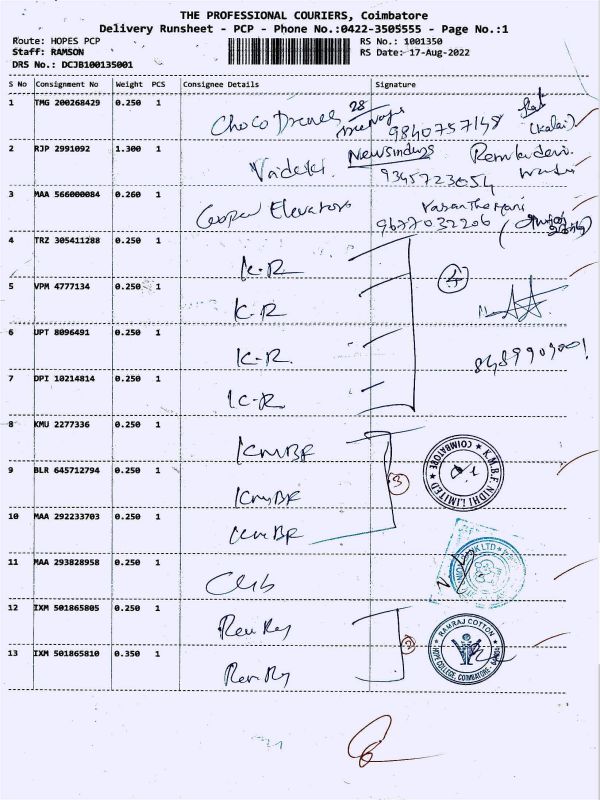 THE PROFESSIONAL COURIERS, Coimbatore
Delivery Runsheet - PCP - Phone No.:0422-3505555 - Page No.:1
Route: HOPES PCP
RS No.: 1001350
Staff: RAMSON
RS Date: 17-Aug-2022
DRS No.: DCJB100135001
S No Consignment No Weight PCS Consignee Details Signature
1 TMG 200268429 0.250 1 Choco 28 9840757148 (Kalai)
2 RJP 2991092 1.300 1 Vaideki 9345723054
3 MAA 566000084 0.260 1 Cooper Elevators Vasanthamani 9677032206
4 TRZ 305411288 0.250 1 K-R 4
5 VPM 4777134 0.250 1 K-R
6 UPT 8096491 0.250 1 K-R 8489909001
7 DPI 10214814 0.250 1 K-R
8 KMU 2277336 1 KMBF
9 BLR 645712794 0.250 1 KMBF 3 K.M.B.F. NIDHI LIMITED COIMBATORE
10 MAA 292233703 0.250 1 KMBF
11 MAA 293828958 0.250 1 CUB
12 IXM 501865805 0.250 1 2 RAMRAJ COTTON
13 IXM 501865810 0.350 1 HOPE COLLEGE, COIMBATORE